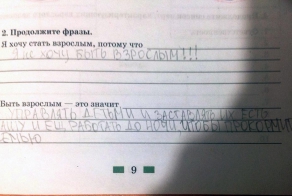 2. Продолжите фразы.
Я хочу стать взрослым, потому что
Я НЕ ХОЧУ БЫТЬ ВЗРОСЛЫМ!!!
Быть взрослым — это значит
УПРАВЛЯТЬ ДЕТЬМИ И ЗАСТАВЛЯТЬ ИХ ЕСТЬ
И ЕЩ РАБОТАТЬ ДО НОЧИ ЧТОБЫ ПРОКОРМИТ
СЕМЬЮ
9